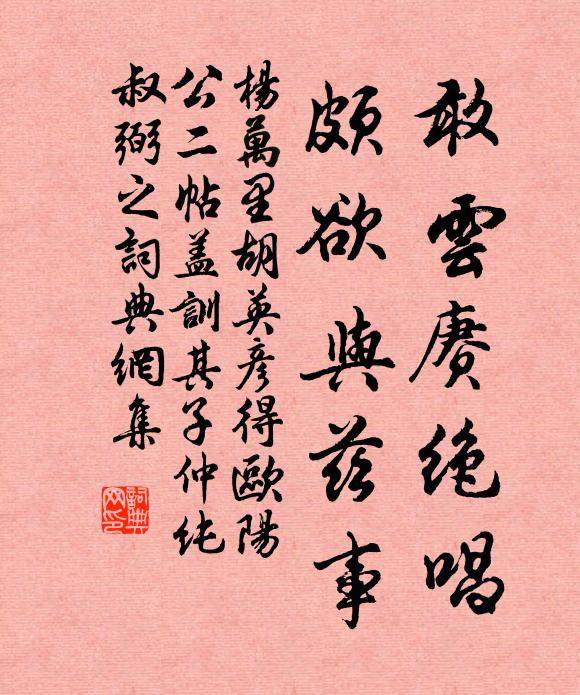 敢雲赓绝唱
頗欲與茲事
楊萬里胡英彥得歐陽
公二帖盖訓其子仲纯
叔弼之詞典網集
詞典网印